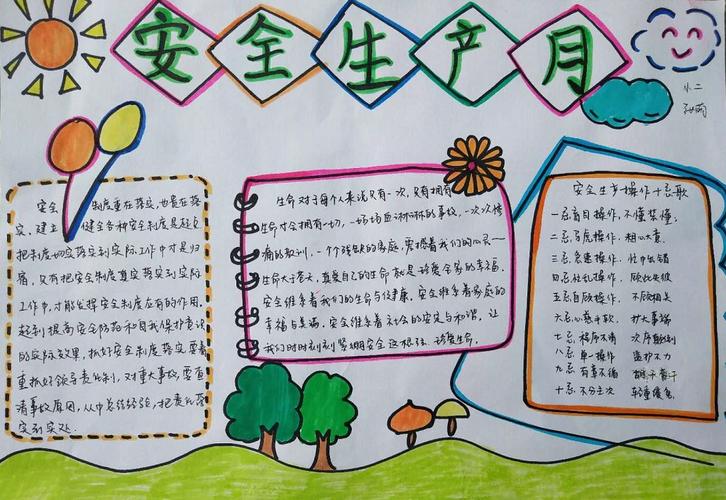 安全生产月
小二
安全 制度重在落实,也贵在落
实。建立 健全各种安全制度是起点
把制度切实落实到实际工作中才是归
宿,只有把安全制度真实落实到实际
工作中,才能发挥安全制度应有的作用。
起到提高安全防范和自我保护意识
的实际效果,抓好安全制度落实要着
重抓好领导责任制,对重大事故,要查
清事故原因,从中总结经验,把责任落
实到实处。
生命对于每个人来说只有一次,只有拥有
生命才会拥有一切,一场场血淋淋的事故,一次次惨
痛的教训,一个个残缺的家庭,震撼着我们的心灵——
生命大于苍天,真爱自己的生命就是珍爱全家的幸福。
安全维系着我们的生命与健康,安全维系着家庭的
幸福与美满,安全维系着社会的安定与和谐,让
我们时时刻刻紧绷安全这根弦,珍爱生命。
安全生产操作十忌歌
一忌盲目操作,不懂装懂;
二忌马虎操作,粗心大意
三忌急速操作,忙中出错
四忌忙乱操作,顾此失彼
五忌自顾操作,不顾相关
六忌心慈手软,扩大事端
七忌程序不清 次序颠倒
八忌单一操作 监护不力
九忌有章不循 胡干蛮干
十忌不分主次